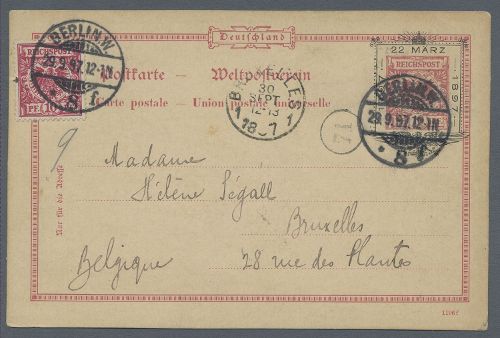 Deutschland
Postkarte — Weltpostverein
Carte postale — Union postale universelle
REICHSPOST
10 PF.
BERLIN.W.
29.9.97.12-1N.
8 f
22 MÄRZ
1897
REICHSPOST
BERLIN.W.
29.9.97.12-1N.
BRUXELLES
30
SEPT
12-13
1 1897 1
71
9
Nur für die Adresse
Madame
Hélène Ségall
Bruxelles
Belgique 28 rue des Plantes